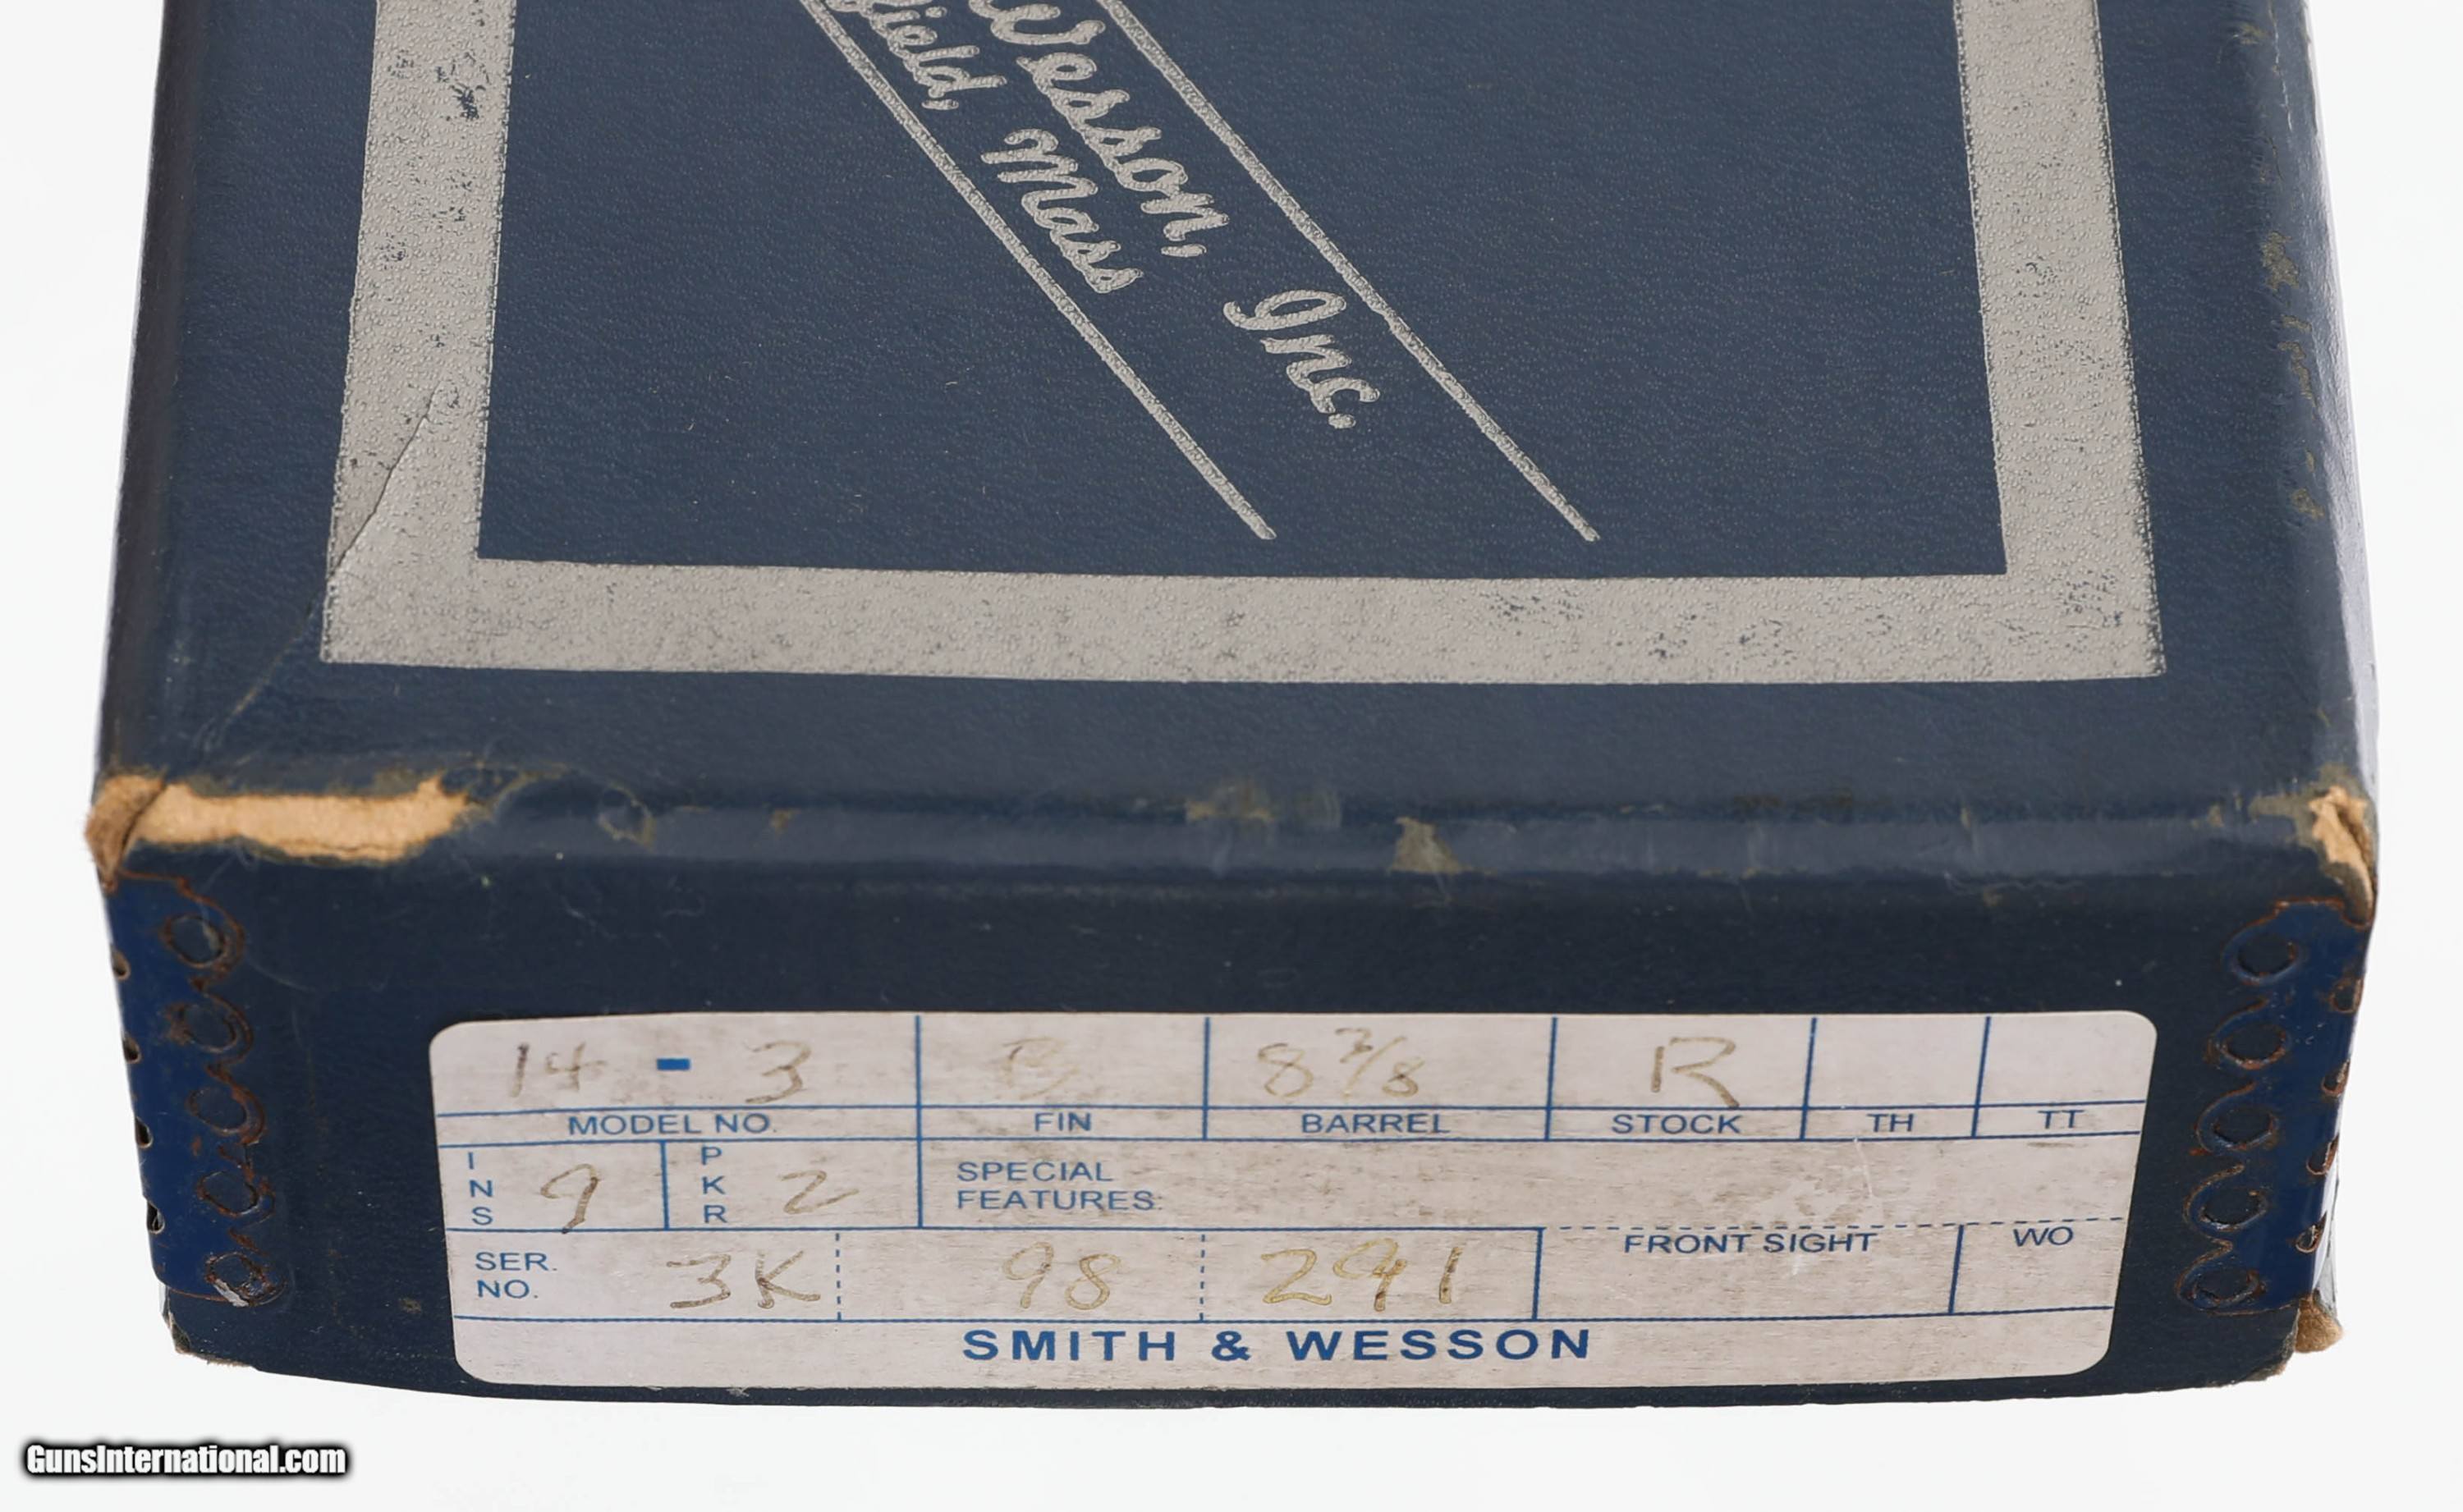 Wesson, Inc.
field, Mass
14 - 3 B 8 3/8 R
MODEL NO. FIN BARREL STOCK TH TT
INS 9 PKR 2 SPECIAL
FEATURES:
SER.
NO. 3K 98 291 FRONT SIGHT WO
SMITH & WESSON
GunsInternational.com